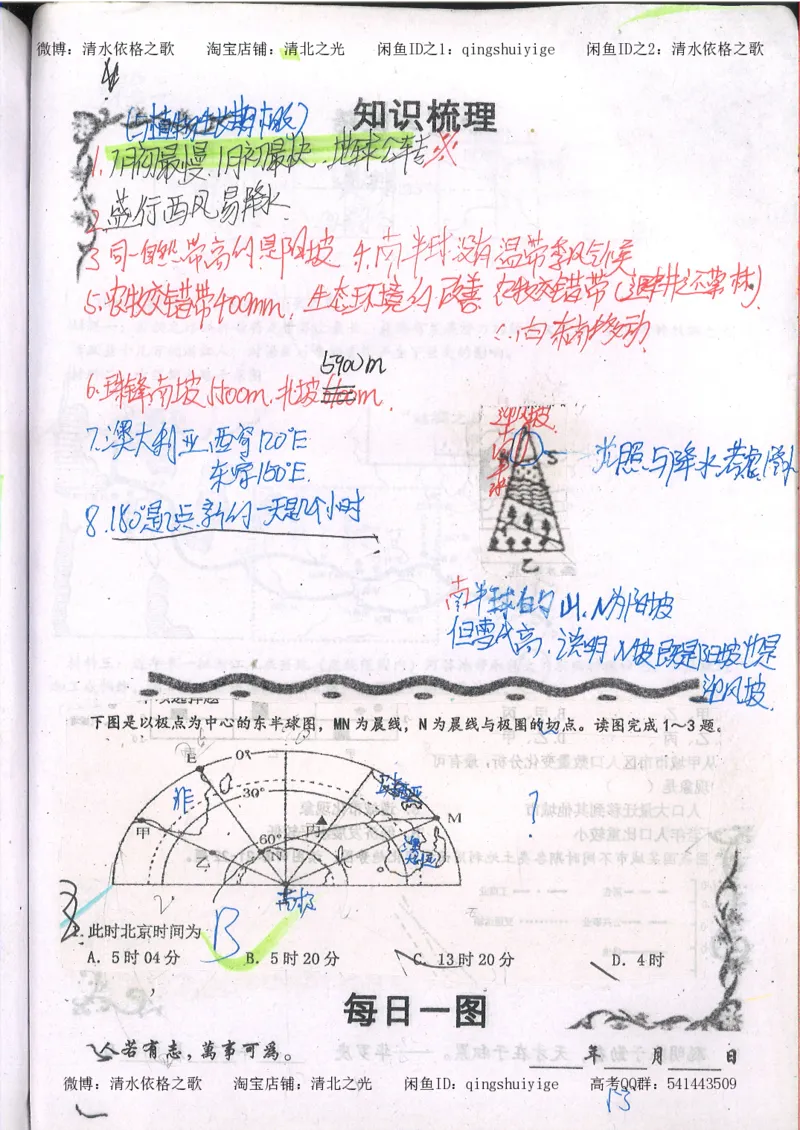 微博：清水依格之歌 淘宝店铺：清北之光 闲鱼ID之1：qingshuiyige 闲鱼ID之2：清水依格之歌
知识梳理
1.7月初最慢.1月初最快.地球公转※
2.盛行西风易降水
3.同一自然带高的是阳坡 4.南半球没有温带季风气候
5.农牧交错带400mm，生态环境的改善 农牧交错带(退耕还草林)
∴向东南移动
5900m
6.珠锋南坡5500m.北坡
7.澳大利亚.西穿120°E
东穿150°E.
8.180°是0点.新的一天是几个小时
迎风坡
降水
S
光照与降水
乙
南半球的山.N为阳坡
但雪线高.说明N坡既是阳坡也是
迎风坡.
下图是以极点为中心的东半球图，MN为晨线，N为晨线与极圈的切点。读图完成1～3题。
E 0°
30°
非
甲
M
60°
丙
乙
N
南极
？
此时北京时间为
B
A．5时04分 B．5时20分 C．13时20分 D．4时
每日一图
人若有志，万事可为。
年 月 日
微博：清水依格之歌 淘宝店铺：清北之光 闲鱼ID：qingshuiyige 高考QQ群：541443509
13